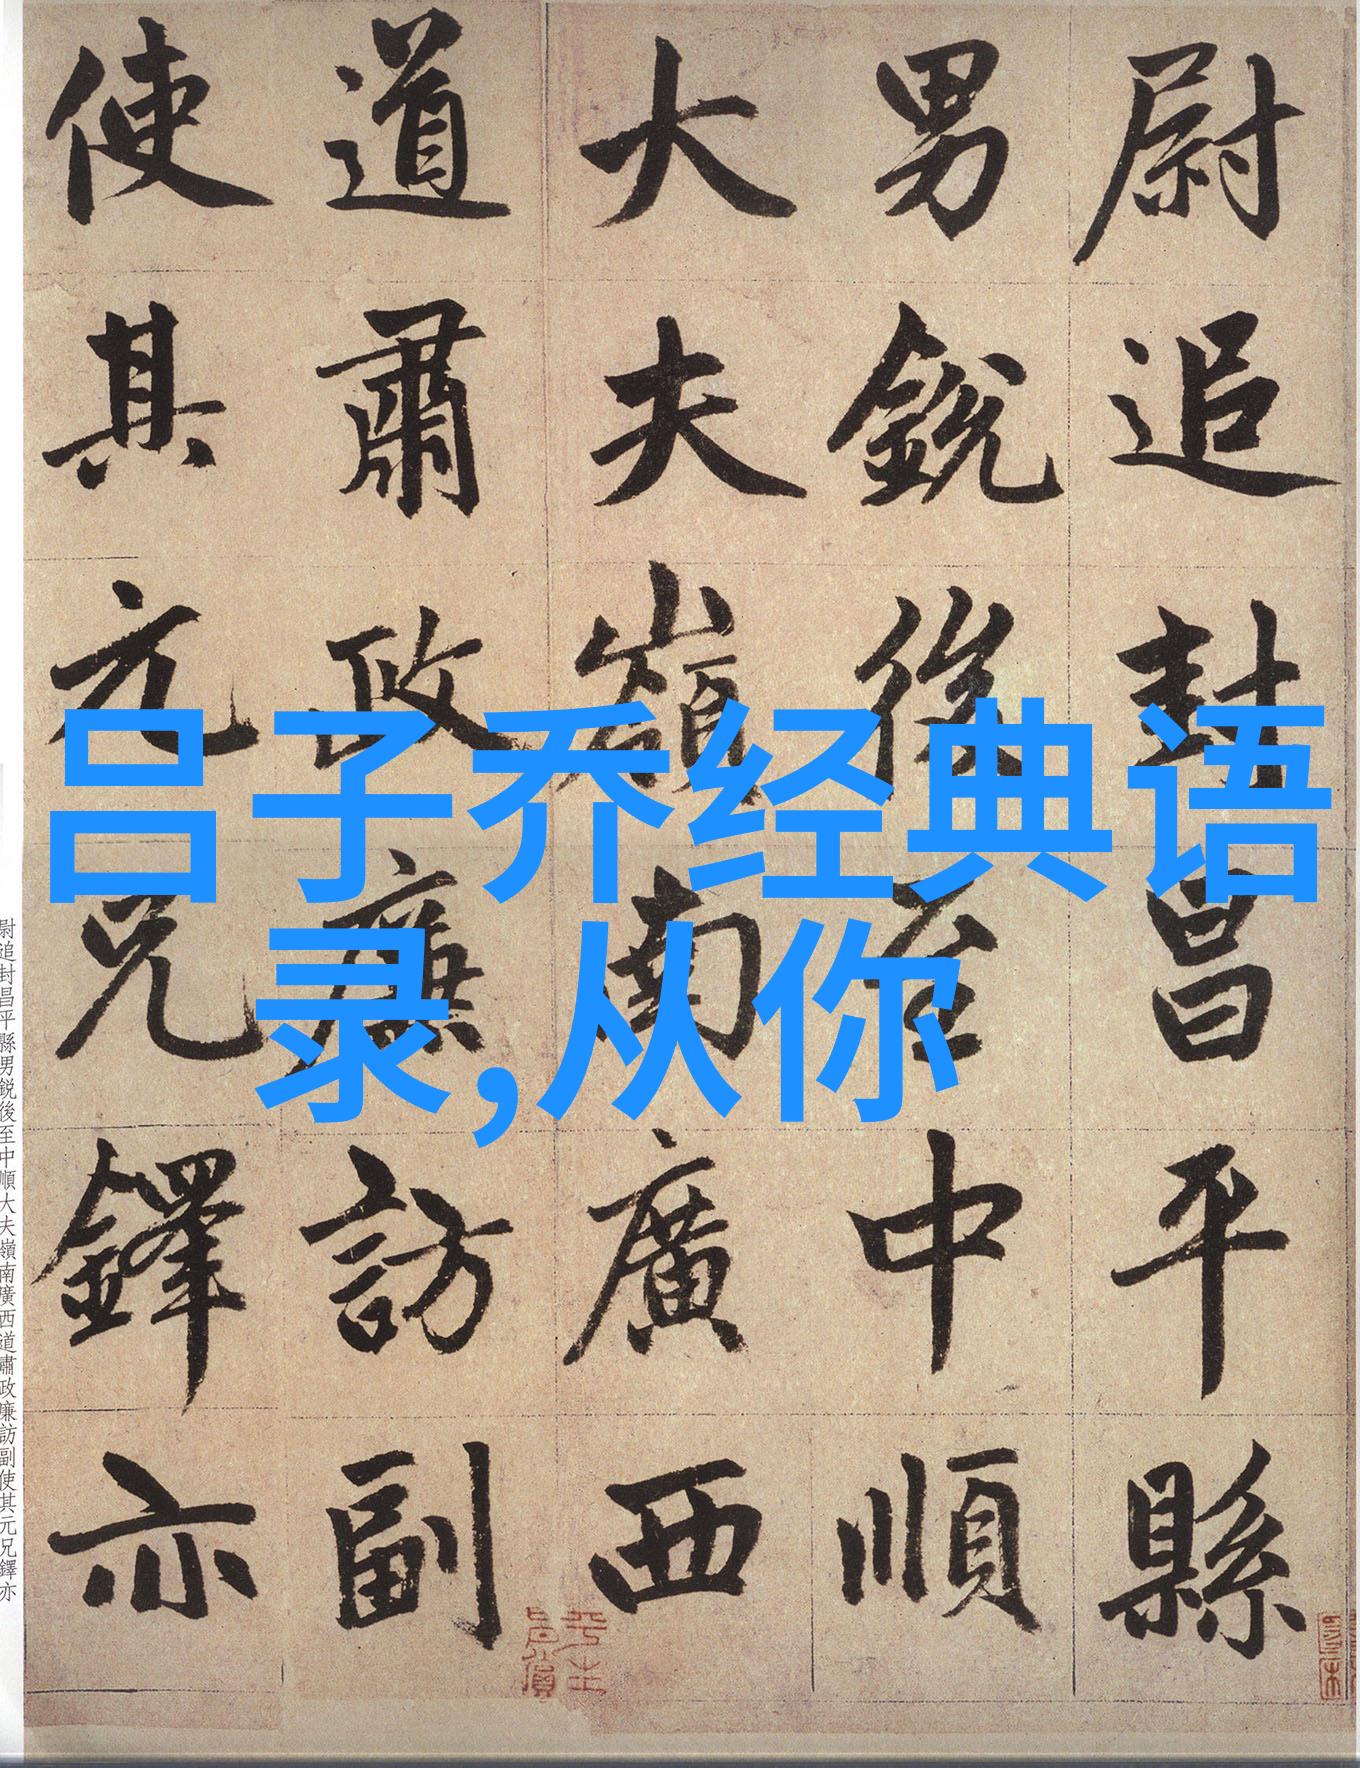 尉追封昌平縣
男銳後至中順
大夫嶺南廣西
道肅政廉訪副
使其元兄鐸亦
吕子乔经典语
录,从你
尉追封昌平縣男銳後至中順大夫嶺南廣西道肅政廉訪副使其元兄鐸亦